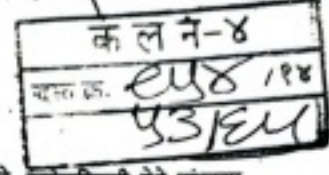 क ल न-४
दस्त क्र. ९५४ /१४
५३/६५